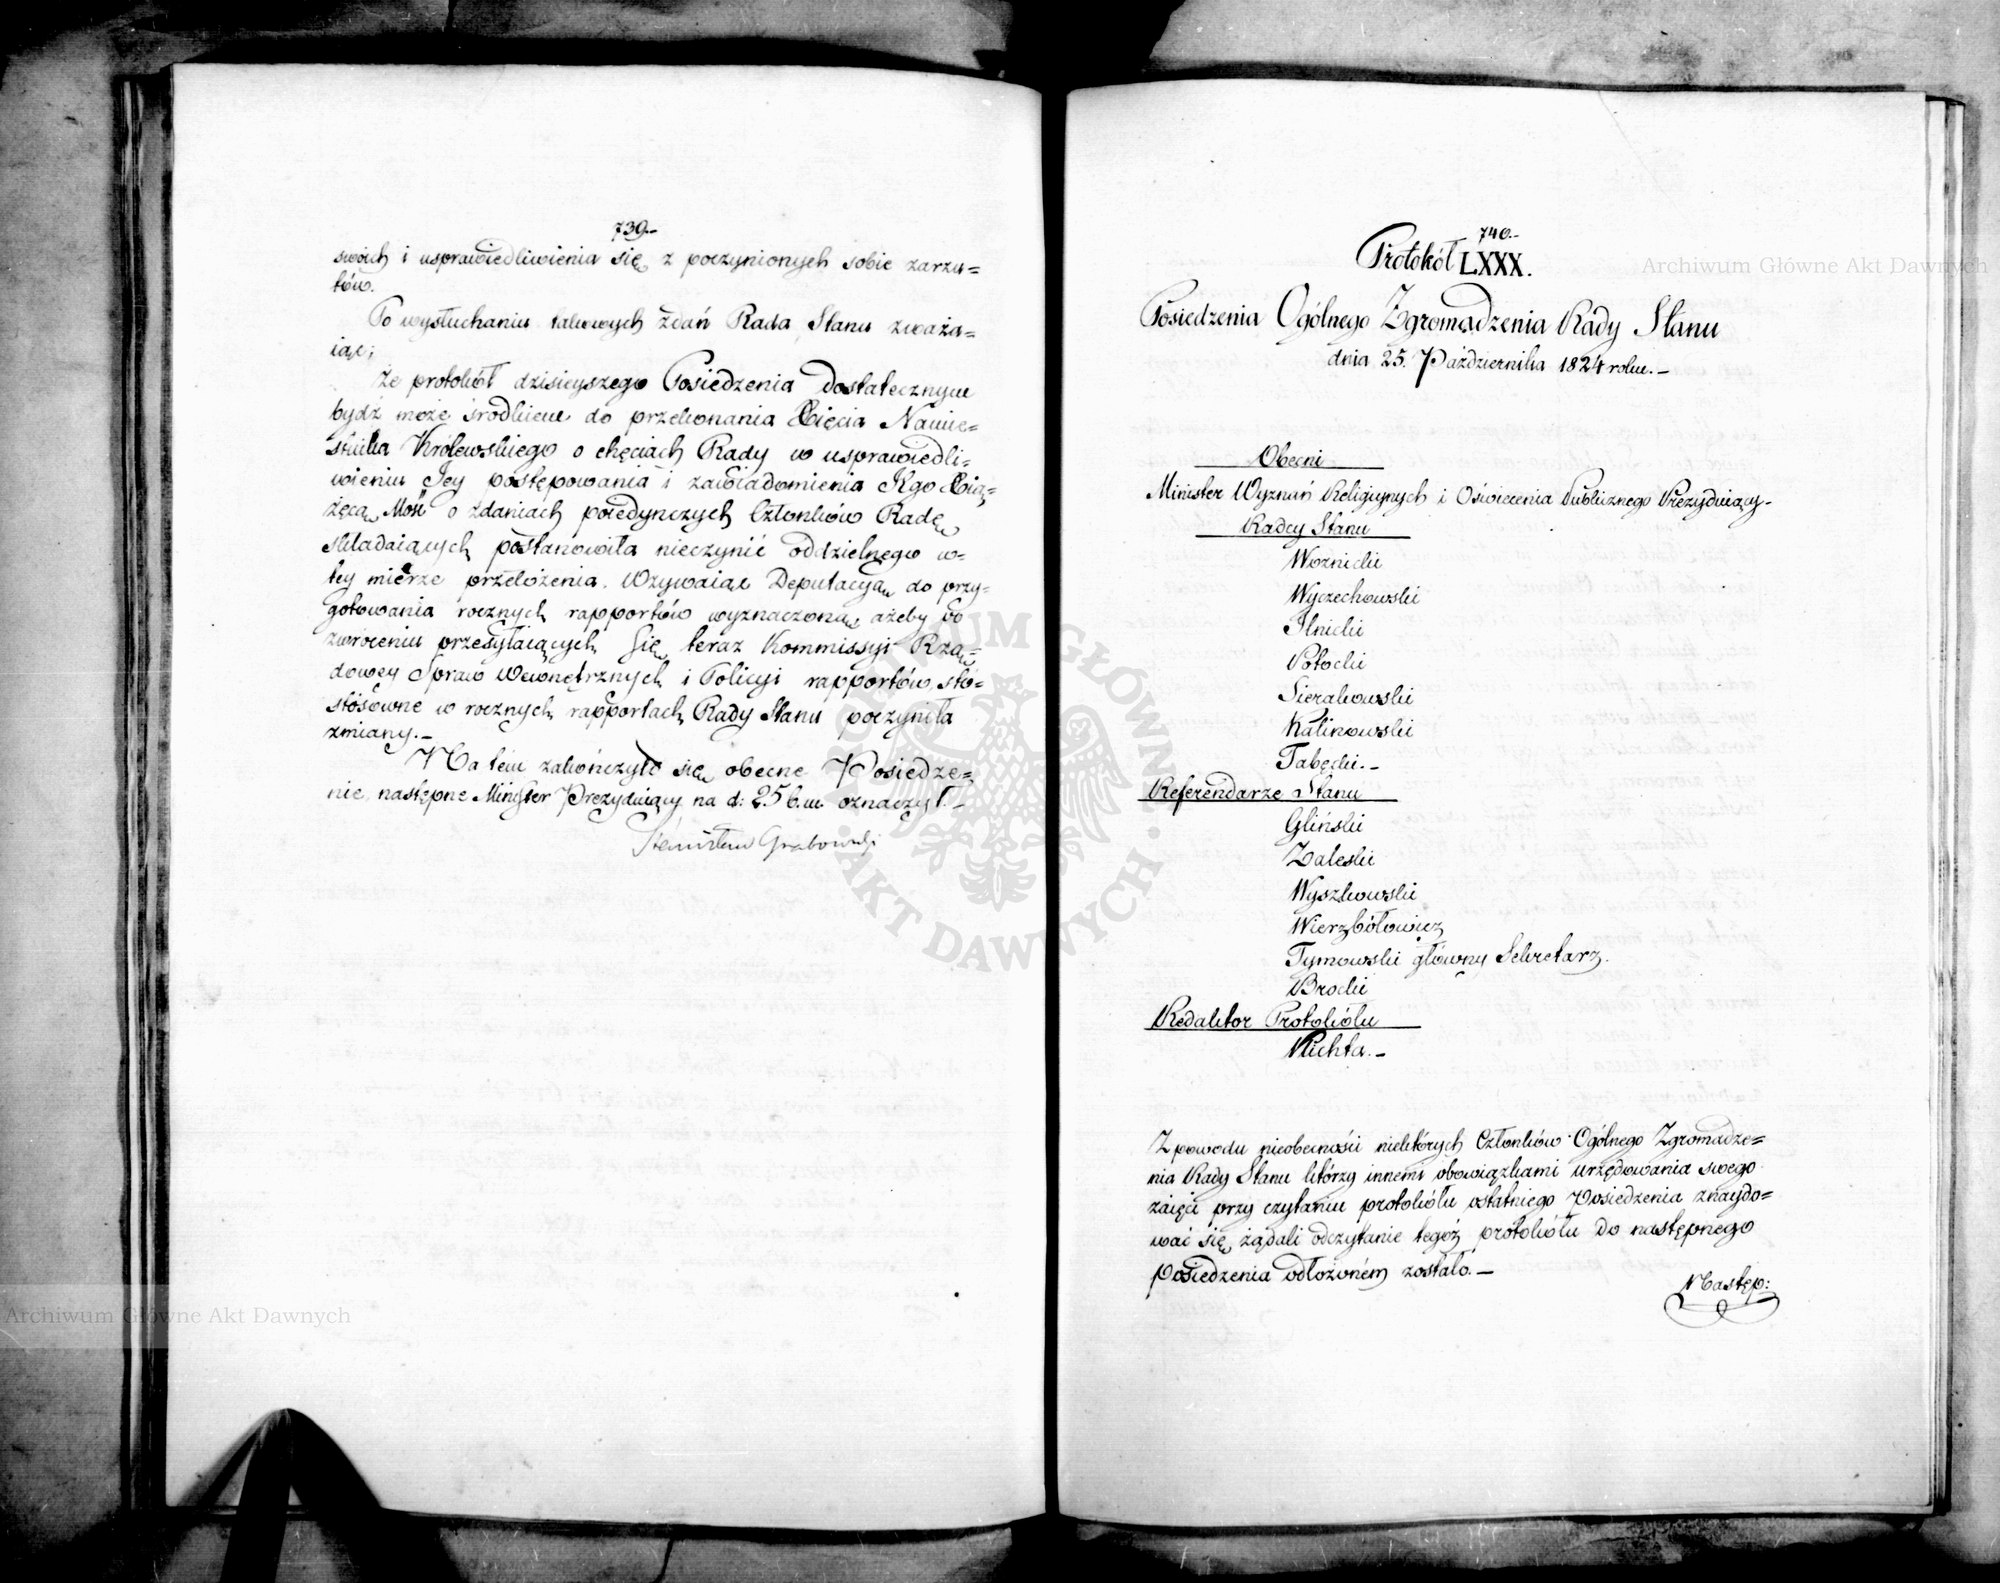 739.-
swoich i usprawiedliwienia się z poczynionych sobie zarzu=
tów.
Po wysłuchaniu takowych zdań Rada Stanu zważa=
iąc;
że protokół dzisieyszego Posiedzenia dostatecznym
bydź może środkiem do przekonania Xięcia Namie=
stnika Królewskiego o chęciach Rady w usprawiedli=
wieniu Jey postępowania i zawiadomienia Jego Xią=
żęcą Mość o zdaniach poiedynczych Członków Radę
składaiących postanowiła nieczynić oddzielnego w=
tey mierze przełożenia. Wzywaiąc Deputacyją do przy=
gotowania rocznych rapportów wyznaczoną, ażeby po
zwróceniu przesyłaiących się teraz Kommissyi Rzą=
dowey Spraw Wewnętrznych i Policyi rapportów, sto=
stósowne w rocznych rapportach Rady Stanu poczyniła
zmiany.-
Na tem zakończyło się obecne Posiedze=
nie, następne Minister Prezyduiący na d: 25 b.m. oznaczył.-
Stanisław Grabowski
740.-
Protokół LXXX.
Posiedzenia Ogólnego Zgromadzenia Rady Stanu
dnia 25. Października 1824 roku.-
Obecni
Minister Wyznań Religijnych i Oświecenia Publicznego Prezyduiący.
Radcy Stanu
Woźnicki
Wyczechowski
Ilnicki
Potocki
Sierakowski
Kalinowski
Tabęcki.-
Referendarze Stanu
Gliński
Zaleski
Wyszkowski
Wierzbółowicz
Tymowski główny Sekretarz.
Brocki
Redaktor Protokółu
Richta.-
Z powodu nieobecności niektórych Członków Ogólnego Zgromadze=
nia Rady Stanu którzy innemi obowiązkami urzędowania swego
zaięci przy czytaniu protokółu ostatniego Posiedzenia znaydo=
wać się żądali odczytanie tegóż protokółu do następnego
Posiedzenia odłożoném zostało.-
Następ:
Archiwum Główne Akt Dawnych
Archiwum Główne Akt Dawnych
ARCHIWUM GŁÓWNE · AKT DAWNYCH ·